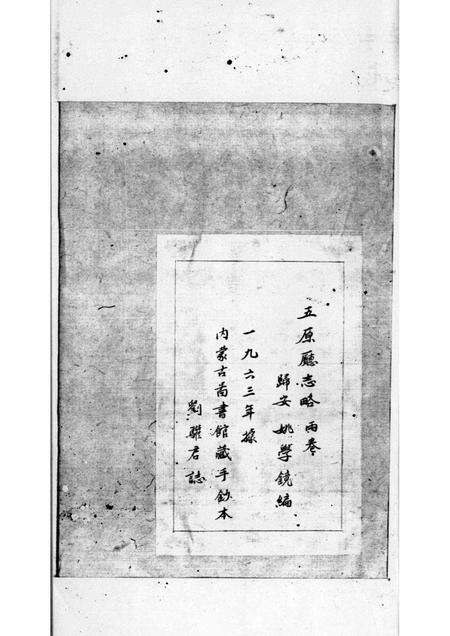 五原廳志略兩卷
歸安姚學鏡編
一九六三年據
內蒙古啚書館藏手鈔本
劉騄君誌